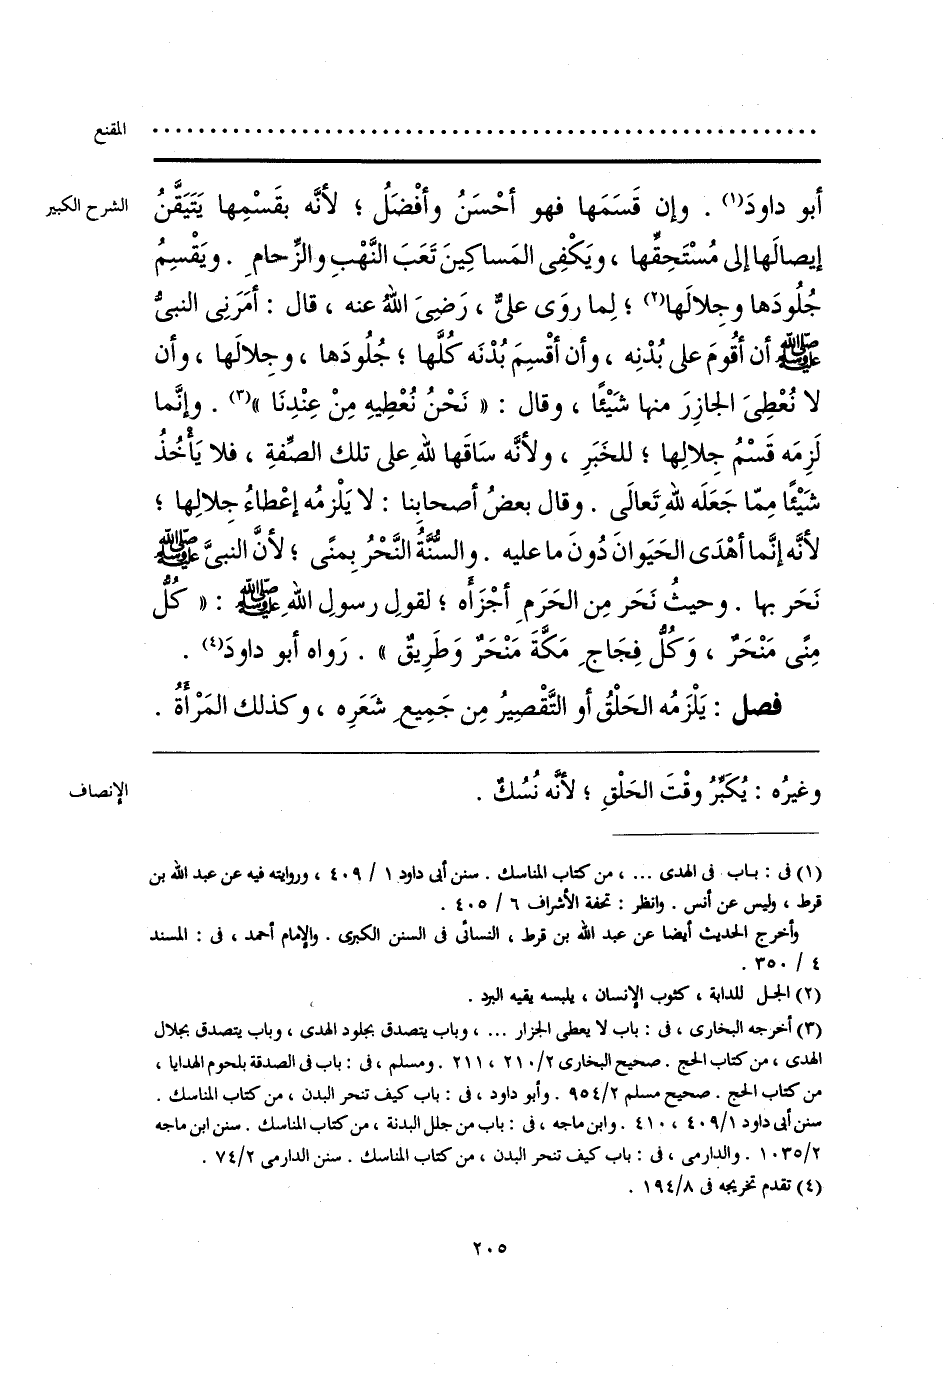 المقنع ........................................................
الشرح الكبير
أبو داودَ(١) . وإن قَسَمَها فهو أحْسَنُ وأفْضَلُ ؛ لأنَّه بقَسْمِها يَتَيَقَّنُ
إيصالَها إلى مُسْتَحِقِّها ، ويَكْفِى المَساكِينَ تَعَبَ النَّهْبِ والزِّحامِ . ويَقْسِمُ
جُلُودَها وجِلالَها(٢) ؛ لِما روَى علىٌّ ، رَضِىَ اللهُ عنه ، قال : أمَرَنِى النبىُّ
ﷺ أن أقُومَ على بُدْنِه ، وأن أقْسِمَ بُدْنَه كُلَّها ؛ جُلُودَها ، وجِلالَها ، وأن
لا نُعْطِىَ الجازِرَ منها شَيْئًا ، وقال : « نَحْنُ نُعْطِيهِ مِنْ عِنْدِنَا »(٣) . وإنَّما
لَزِمَه قَسْمُ جِلالِها ؛ للخَبَرِ ، ولأنَّه ساقَها للهِ على تلك الصِّفةِ ، فلا يَأْخُذُ
شَيْئًا مِمّا جَعَلَه للهِ تَعالَى . وقال بعضُ أصحابِنا : لا يَلْزمُه إعْطاءُ جِلالِها ؛
لأنَّه إنَّما أهْدَى الحَيَوانَ دُونَ ما عليه . والسُّنَّةُ النَّحْرُ بِمنًى ؛ لأنَّ النبىَّ ﷺ
نَحَر بها . وحيثُ نَحَر مِن الحَرَمِ أجْزَأه ؛ لقولِ رسولِ اللهِ ﷺ : « كُلُّ
مِنًى مَنْحَرٌ ، وَكُلُّ فِجَاجِ مَكَّةَ مَنْحَرٌ وَطَرِيقٌ » . رَواه أبو داودَ(٤) .
فصل : يَلْزَمُه الحَلْقُ أو التَّقْصِيرُ مِن جَمِيعِ شَعَرِه ، وكذلك المَرْأةُ .
الإنصاف
وغيرُه : يُكَبِّرُ وقْتَ الحَلْقِ ؛ لأنَّه نُسُكٌ .
(١) فى : باب فى الهدى ... ، من كتاب المناسك . سنن أبى داود ١ / ٤٠٩ ، وروايته فيه عن عبد الله بن
قرط ، وليس عن أنس . وانظر : تحفة الأشراف ٦ / ٤٠٥ .
وأخرج الحديث أيضا عن عبد الله بن قرط ، النسائى فى السنن الكبرى . والإمام أحمد ، فى : المسند
٤ / ٣٥٠ .
(٢) الجل للدابة ، كثوب الإنسان ، يلبسه يقيه البرد .
(٣) أخرجه البخارى ، فى : باب لا يعطى الجزار ... ، وباب يتصدق بجلود الهدى ، وباب يتصدق بجلال
الهدى ، من كتاب الحج . صحيح البخارى ٢/ ٢١٠ ، ٢١١ . ومسلم ، فى : باب فى الصدقة بلحوم الهدايا ،
من كتاب الحج . صحيح مسلم ٢/ ٩٥٤ . وأبو داود ، فى : باب كيف تنحر البدن ، من كتاب المناسك .
سنن أبى داود ١/ ٤٠٩ ، ٤١٠ . وابن ماجه ، فى : باب من جلل البدنة ، من كتاب المناسك . سنن ابن ماجه
٢/ ١٠٣٥ . والدارمى ، فى : باب كيف تنحر البدن ، من كتاب المناسك . سنن الدارمى ٢/ ٧٤ .
(٤) تقدم تخريجه فى ٨/ ١٩٤ .
٢٠٥